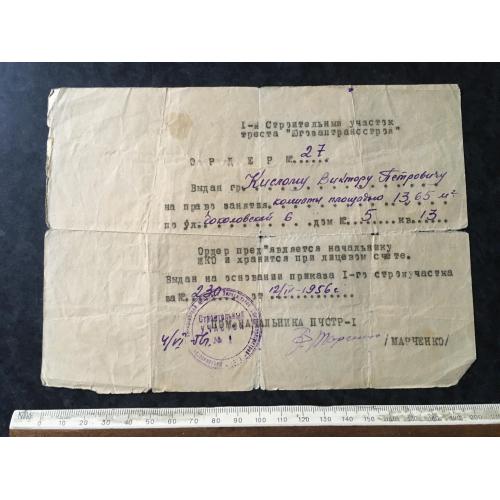 1-й Строительный участок
треста "Югозаптрансстрой"
О Р Д Е Р № 27
Выдан гр. Кислому Виктору Петровичу
на право занятия комнаты площадью 13,65 м²
по ул. Соколовский 6 дом № 5 кв. 13
Ордер пред"является начальнику
ЖКО и хранится при лицевом счете.
Выдан на основании приказа 1-го стройучастка
за № 230 от 12/IV-1956 г
ПОМ.НАЧАЛЬНИКА ПЧСТР-1
/МАРЧЕНКО/
Строительный
участок
№ 1
4/VI 56г.
0 10 20 30 40 50 60 70 80 90 100 110 120 130 140 150 160 170 180 190 200